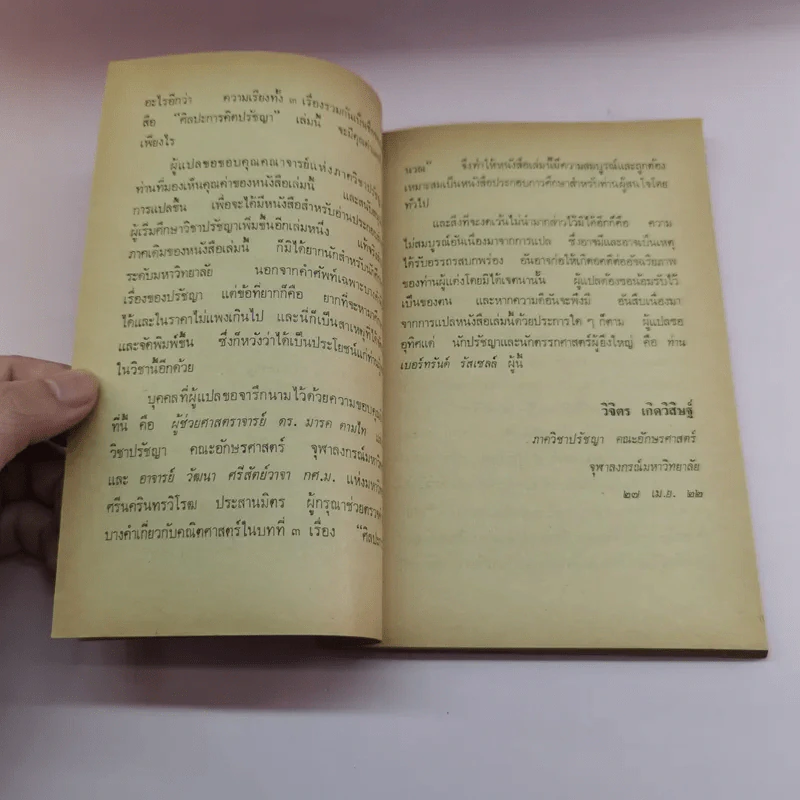 อะไรอีกว่า ความเรียงทั้ง ๓ เรื่องรวมกันเป็นชื่อหนัง
สือ "ศิลปะการคิดปรัชญา" เล่มนี้ จะมีคุณค่า
เพียงไร
ผู้แปลขอขอบคุณคณาจารย์แห่งภาควิชาปรัชญา
ท่านที่มองเห็นคุณค่าของหนังสือเล่มนี้ และสนับสนุน
การแปลขึ้น เพื่อจะได้มีหนังสือสำหรับอ่านประกอบ
ผู้เริ่มศึกษาวิชาปรัชญาเพิ่มขึ้นอีกเล่มหนึ่ง แท้จริง
ภาคเดิมของหนังสือเล่มนี้ ก็มิได้ยากนักสำหรับนัก
ระดับมหาวิทยาลัย นอกจากคำศัพท์เฉพาะบาง
เรื่องของปรัชญา แต่ข้อที่ยากก็คือ ยากที่จะหา
ได้และในราคาไม่แพงเกินไป และนี่ก็เป็นสาเหตุที่ได้
และจัดพิมพ์ขึ้น ซึ่งก็หวังว่าได้เป็นประโยชน์แก่ท่านผู้
ในวิชานี้อีกด้วย
บุคคลที่ผู้แปลขอจารึกนามไว้ด้วยความขอบคุณ
ที่นี้ คือ ผู้ช่วยศาสตราจารย์ ดร. มารค ตามไท
วิชาปรัชญา คณะอักษรศาสตร์ จุฬาลงกรณ์มหาวิท
และ อาจารย์ วัฒนา ศรีสัตย์วาจา กศ.ม. แห่งมหาวิท
ศรีนครินทรวิโรฒ ประสานมิตร ผู้กรุณาช่วยตรวจ
บางคำเกี่ยวกับคณิตศาสตร์ในบทที่ ๓ เรื่อง "ศิลปะ
นวณ" จึงทำให้หนังสือเล่มนี้มีความสมบูรณ์และถูกต้อง
เหมาะสมเป็นหนังสือประกอบการศึกษาสำหรับท่านผู้สนใจโดย
ทั่วไป
และสิ่งที่จะงดเว้นไม่นำมากล่าวไว้มิได้อีกก็คือ ความ
ไม่สมบูรณ์อันเนื่องมาจากการแปล ซึ่งอาจมีและอาจเป็นเหตุ
ให้รับอรรถรสบกพร่อง อันอาจก่อให้เกิดอคติต่ออัจฉริยภาพ
ของท่านผู้แต่งโดยมิได้เจตนานั้น ผู้แปลต้องขอน้อมรับไว้
เป็นของตน และหากความดีอันจะพึงมี อันสืบเนื่องมา
จากการแปลหนังสือเล่มนี้ด้วยประการใด ๆ ก็ตาม ผู้แปลขอ
อุทิศแด่ นักปรัชญาและนักตรรกศาสตร์ผู้ยิ่งใหญ่ คือ ท่าน
เบอร์ทรันด์ รัสเซลล์ ผู้นี้
วิจิตร เกิดวิสิษฐ์
ภาควิชาปรัชญา คณะอักษรศาสตร์
จุฬาลงกรณ์มหาวิทยาลัย
๒๗ เม.ย. ๒๒